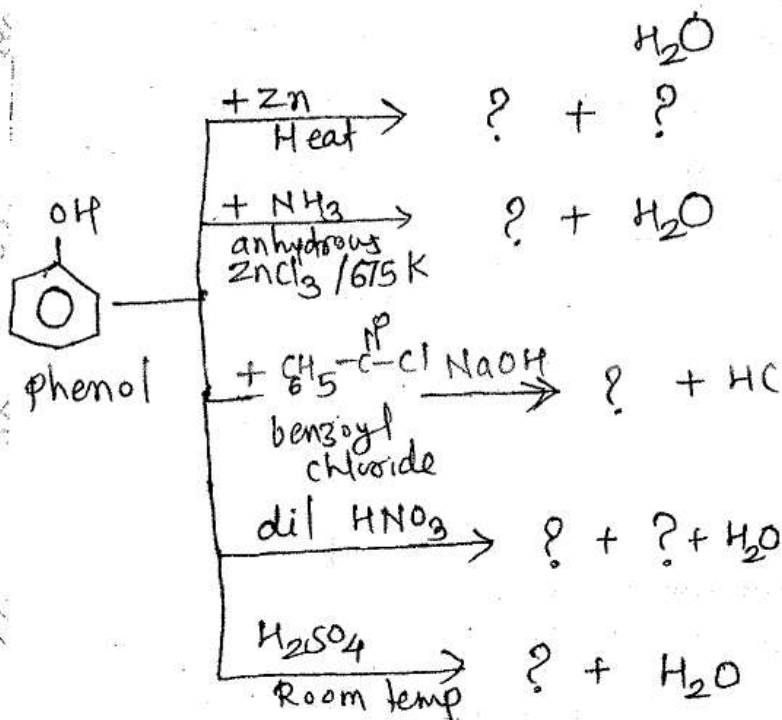 H₂O
+ Zn
Heat
? + ?
OH
+ NH₃
anhydrous
ZnCl₃ / 675 K
? + H₂O
phenol
+ C₆H₅-C-Cl NaOH
O
benzoyl
chloride
? + HC
dil HNO₃
? + ? + H₂O
H₂SO₄
Room temp
? + H₂O